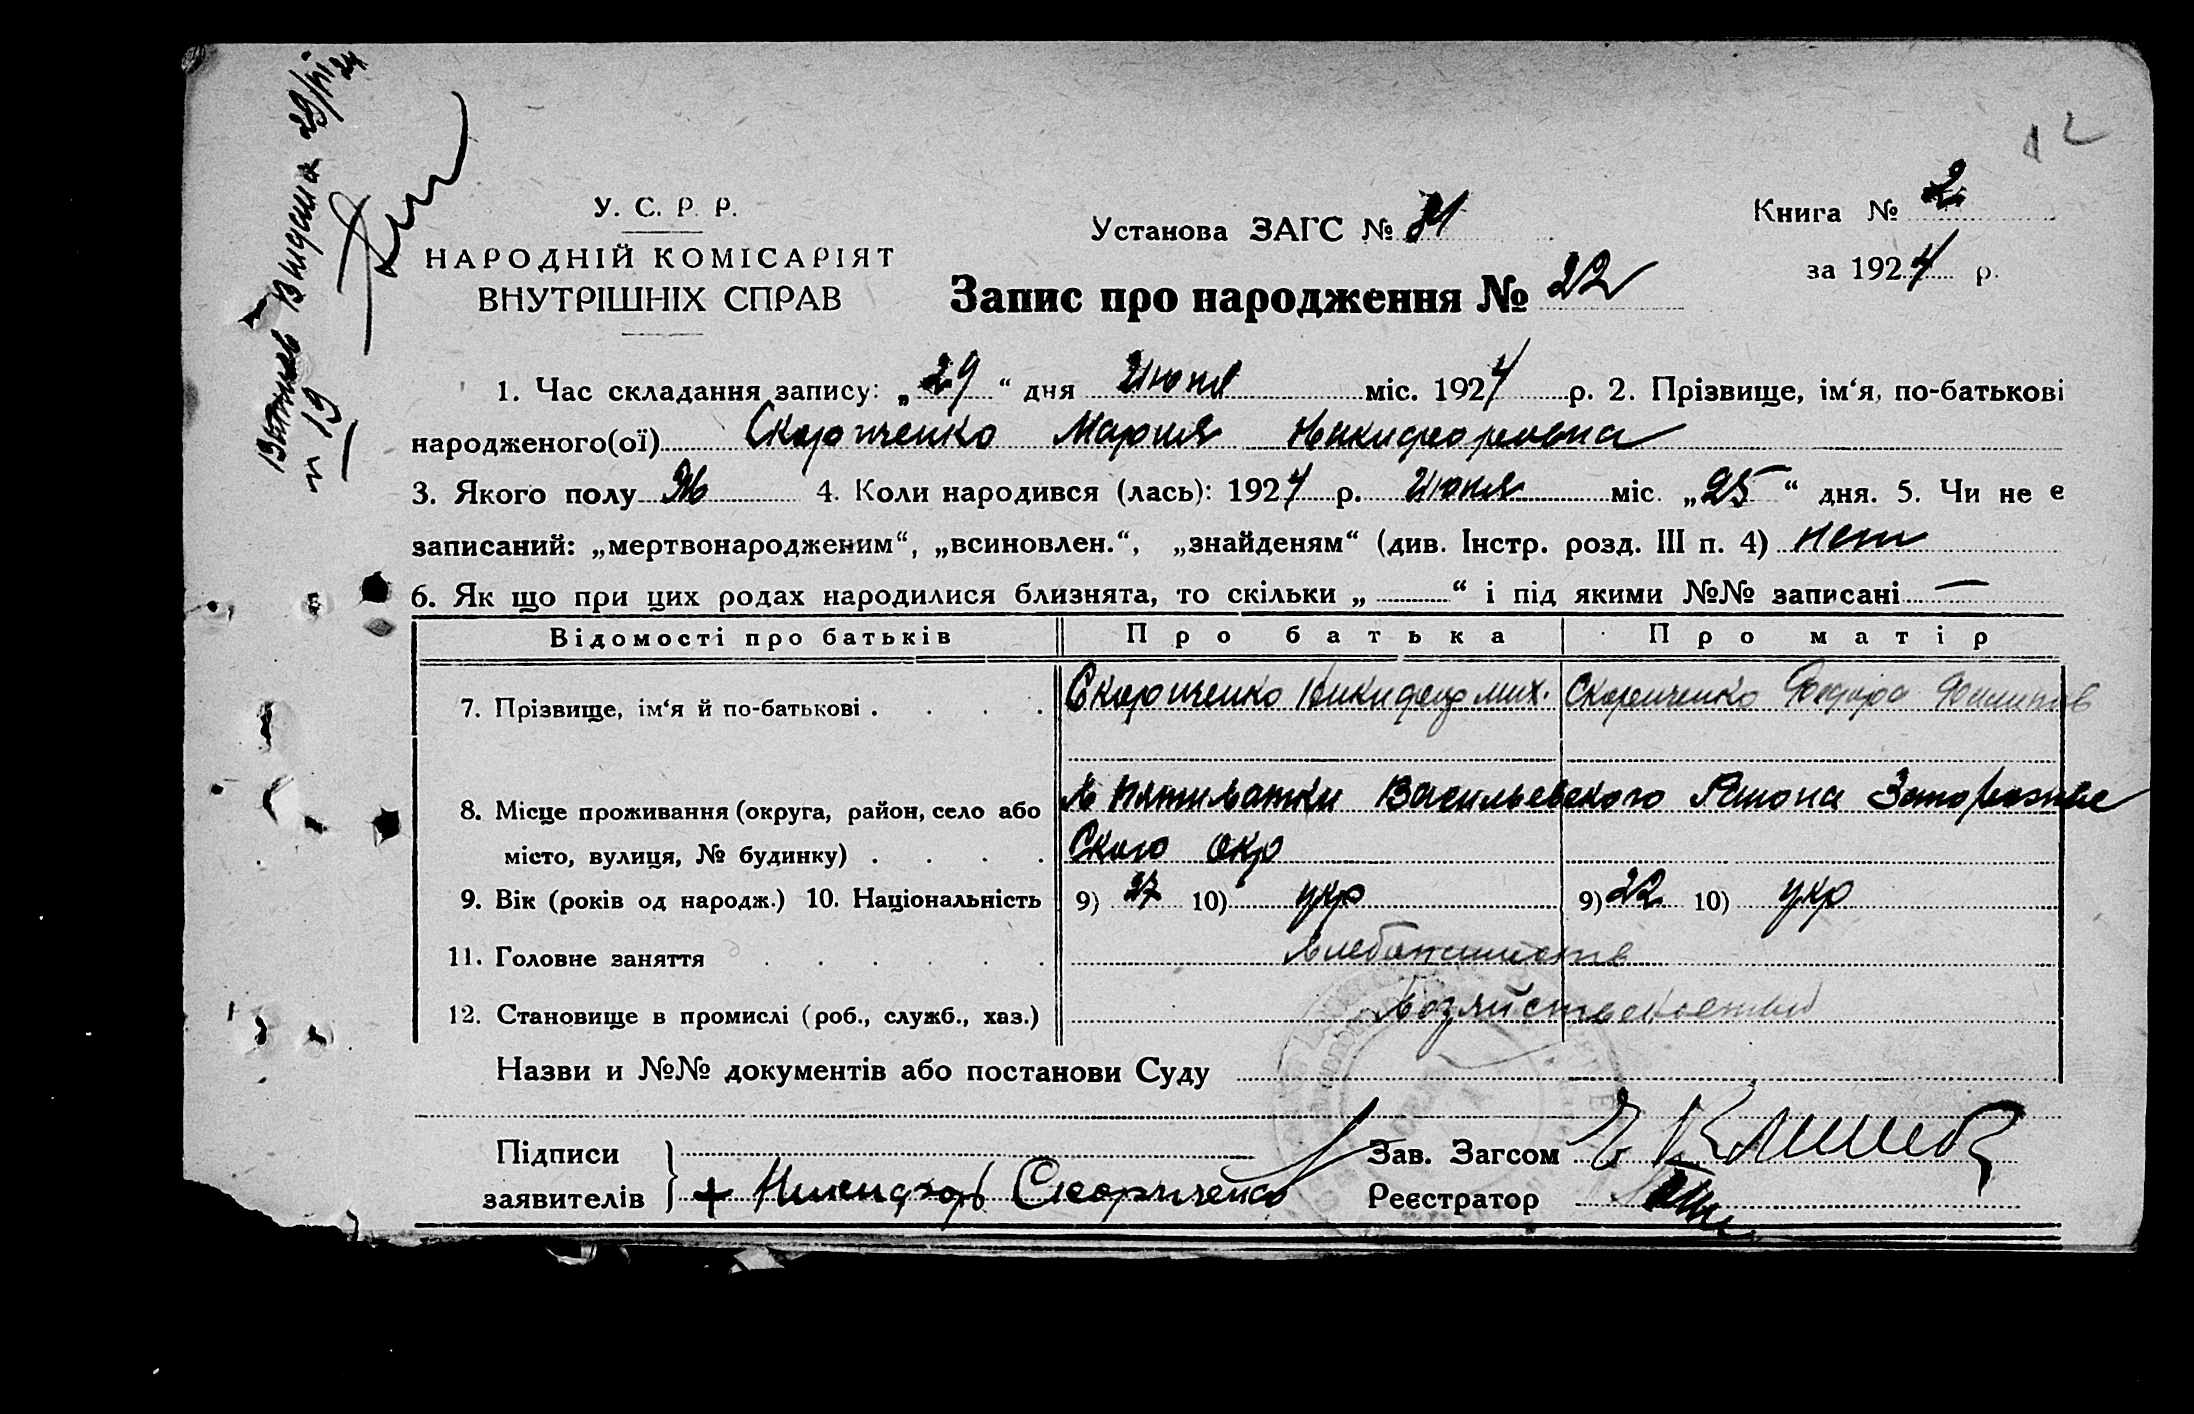 12
Выдана 29/VII 24
выпись
n 19
У. С. Р. Р.
НАРОДНІЙ КОМІСАРІЯТ
ВНУТРІШНІХ СПРАВ
Установа ЗАГС № 81
Запис про народження № 22
Книга № 2
за 1924 р.
1. Час складання запису: „29“ дня Июня міс. 1924 р. 2. Прізвище, ім‘я, по-батькові
народженого(ої) Скорпченко Мария Никифоровна
3. Якого полу Ж 4. Коли народився (лась): 1924 р. Июня міс. „25“ дня. 5. Чи не є
записаний: „мертвонародженим“, „всиновлен.“, „знайденям“ (див. Інстр. розд. III п. 4) нет
6. Як що при цих родах народилися близнята, то скільки „ “ і під якими №№ записані —
Відомості про батьків Про батька Про матір
7. Прізвище, ім‘я й по-батькові . . . . Скорпченко Никифор Мих. Скорпченко Филипов
8. Місце проживання (округа, район, село або Пятихатки Васильевского Района Запорожье
місто, вулиця, № будинку) . . . . Ского окр
9. Вік (років од народж.) 10. Національність 9) 27 10) укр 9) 22 10) укр
11. Головне заняття . . . . . . хлебопашество
12. Становище в промислі (роб., служб., хаз.)
Назви и №№ документів або постанови Суду
Підписи
заявителів + Никифор Скорпченко
Зав. Загсом
Реєстратор